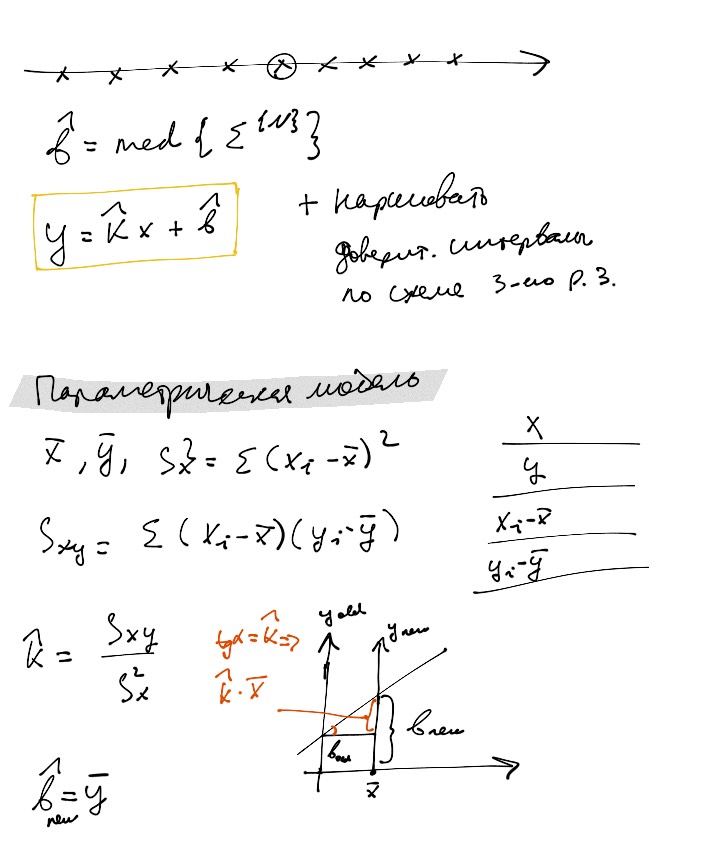 b̂ = med { Σ^{N} }
y = k̂ x + b̂
+ нарисовать
доверит. интервалы
по схеме 3-его р. з.
Параметрическая модель
x̄, ȳ, Sx² = Σ (xᵢ - x̄)²
Sxy = Σ (xᵢ - x̄)(yᵢ - ȳ)
x
y
xᵢ - x̄
yᵢ - ȳ
k̂ = Sxy / Sx²
tgα = k̂ =>
k̂ · x̄
y old
y new
b new
b old
x̄
b̂ new = ȳ